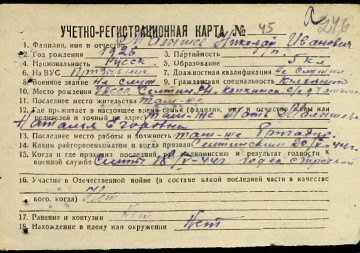 246
УЧЕТНО-РЕГИСТРАЦИОННАЯ КАРТА № 45
1. Фамилия, имя и отчество Малышев Николай Иванович
2. Год рождения 1926 3. Партийность б/п
4. Национальность Русск 5. Образование 5 кл
6. На ВУС 7. Должностная квалификация не служил
8. Военное звание Не служ 9. Гражданская специальность
10. Место рождения УАССР Селтинск
11. Последнее место жительства там-же
12. Где проживает в настоящее время семья (фамилия, имя и отчество жены или
родителей и точный их адрес) там-же Мать Малышева
Наталья Егоровна
13. Последнее место работы и должность там-же Бригадир
14. Каким райгорвоенкоматом и когда призван Селтинским 20/V-44г.
15. Когда и где проходил последний раз комиссию и результат годности к
военной службе Селты 18/V-44г. годен строевой
16. Участие в Отечественной войне (в составе какой последней части в качестве
кого, когда) Нет
17. Ранения и контузии Нет
18. Нахождение в плену или окружении Нет